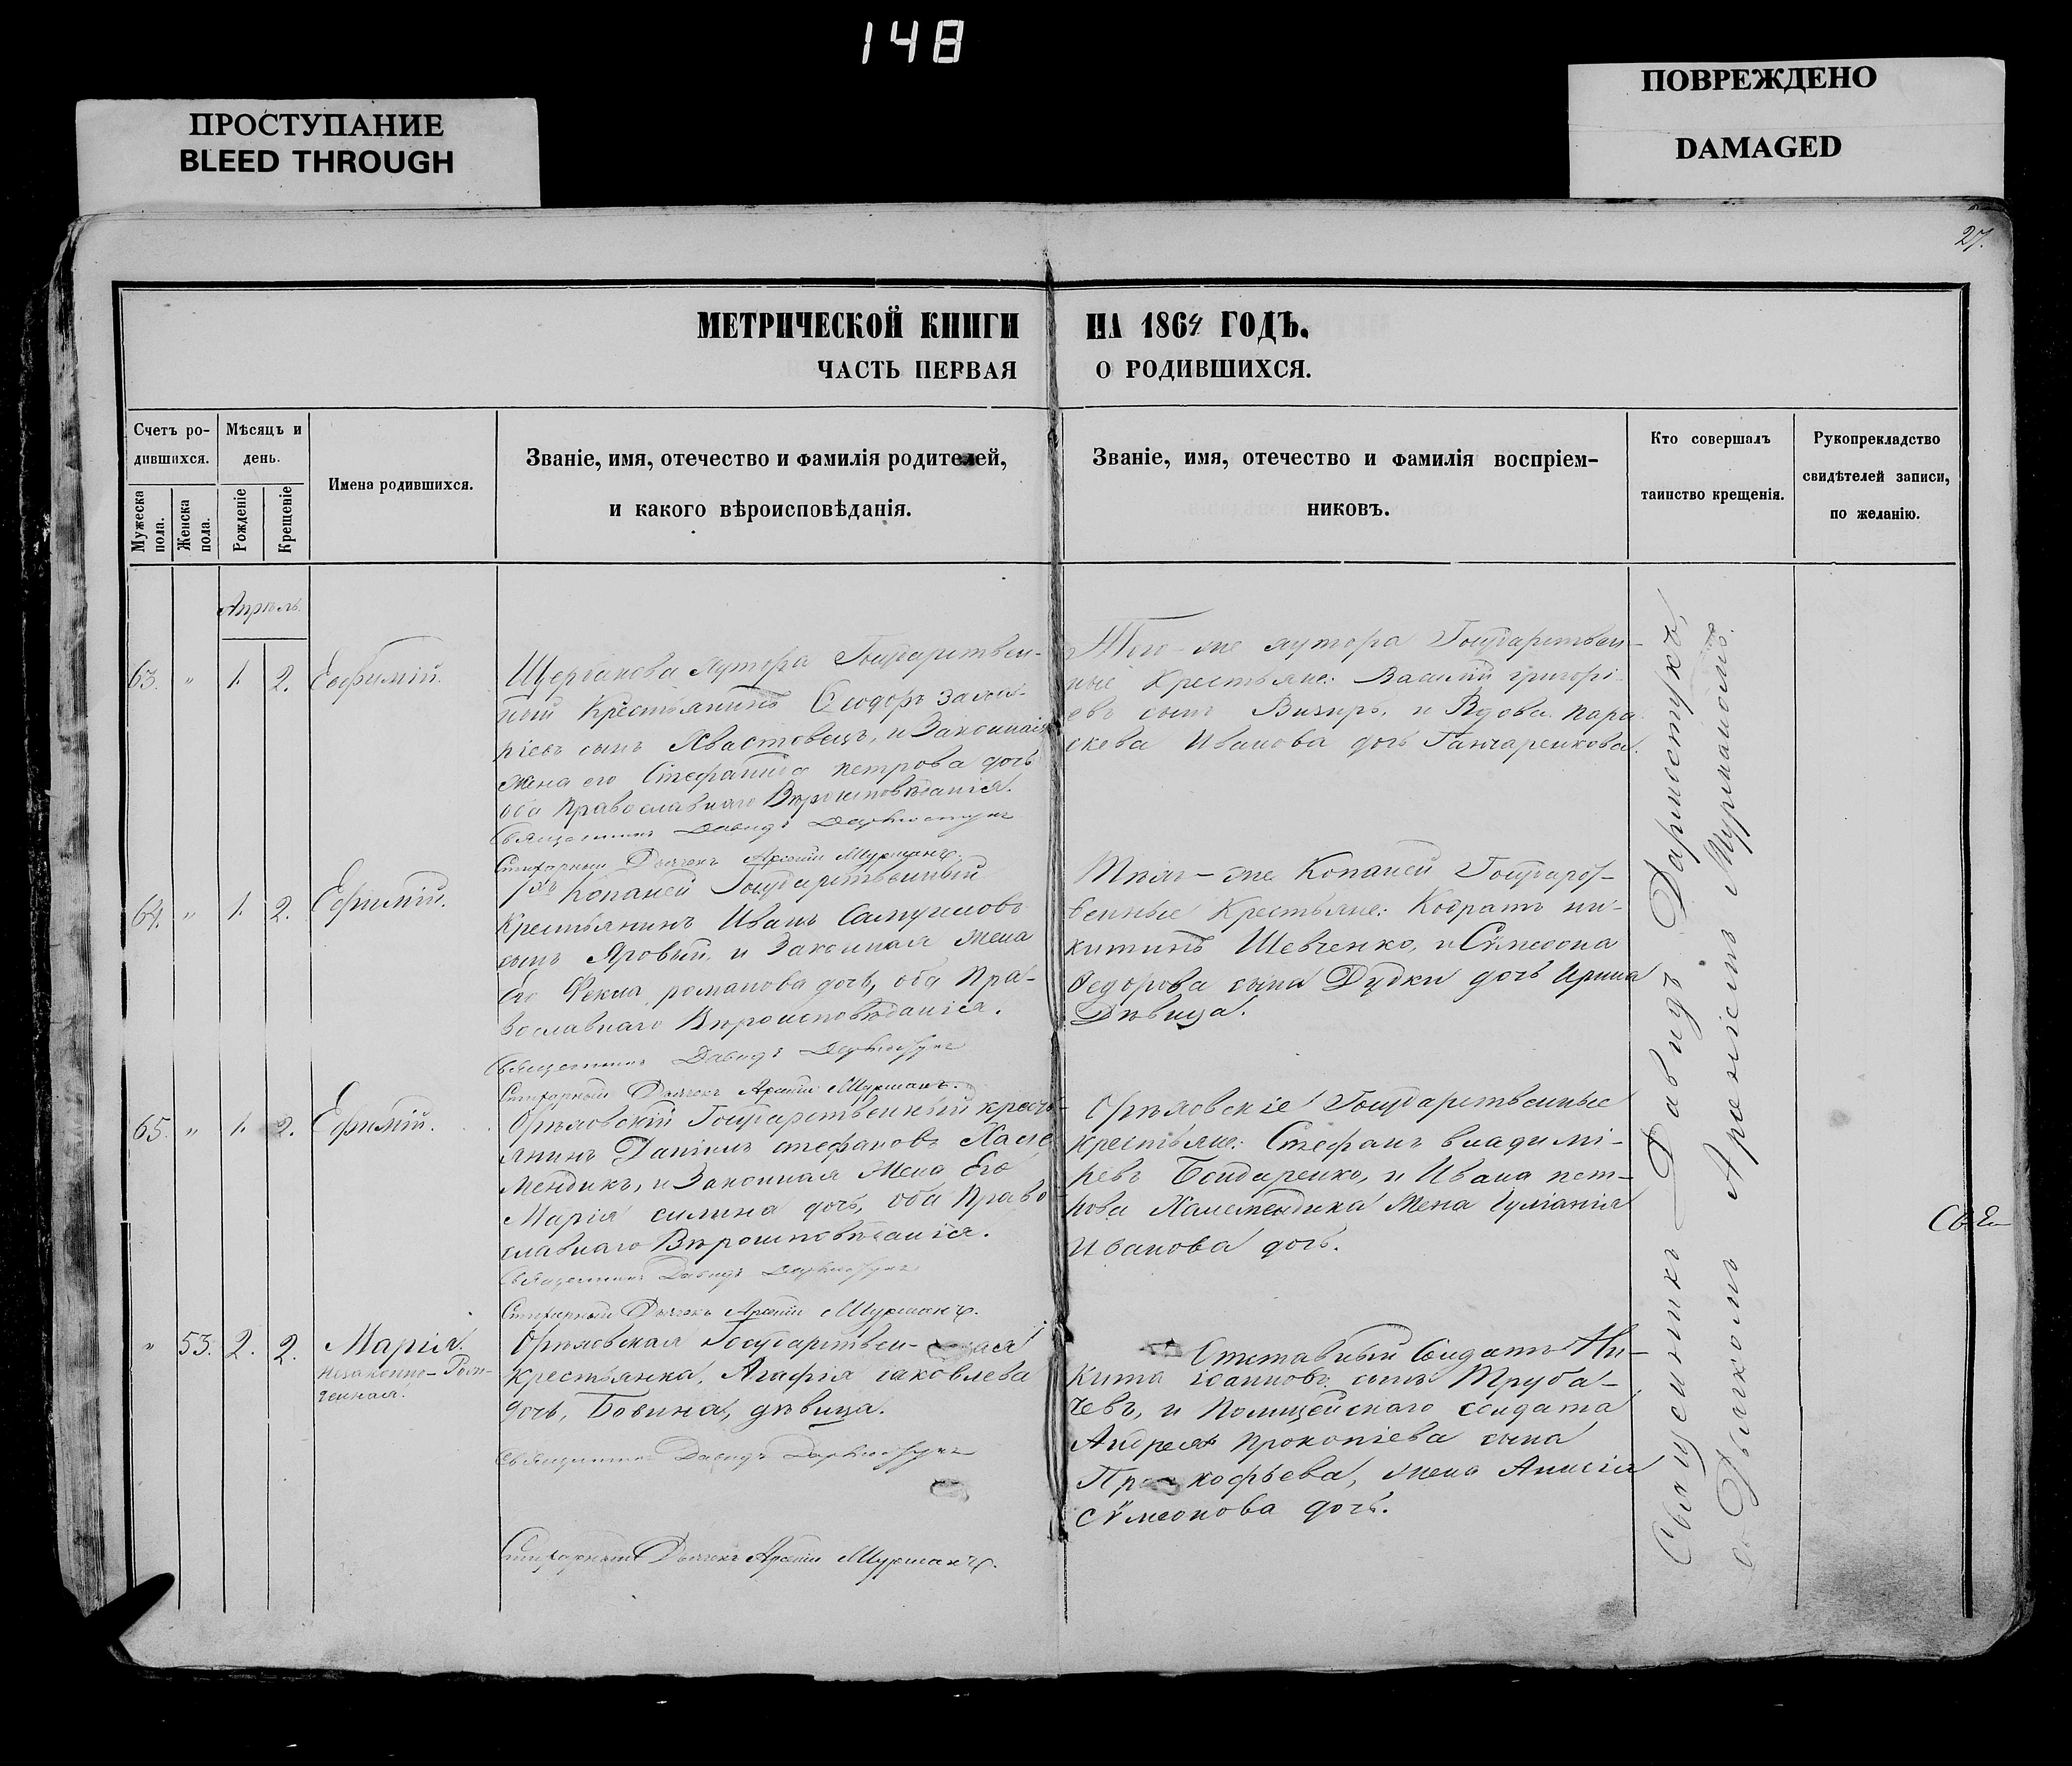 148
ПРОСТУПАНИЕ
BLEED THROUGH
ПОВРЕЖДЕНО
DAMAGED
27.
МЕТРИЧЕСКОЙ КНИГИ НА 1864 ГОДЪ.
ЧАСТЬ ПЕРВАЯ О РОДИВШИХСЯ.
Счетъ ро-
дившихся.
Мужеска пола.
Женска пола.
Мѣсяцъ и
день.
Рожденіе
Крещеніе
Имена родившихся.
Званіе, имя, отечество и фамилія родителей,
и какого вѣроисповѣданія.
Званіе, имя, отечество и фамилія воспріем-
никовъ.
Кто совершалъ
таинство крещенія.
Рукоприкладство
свидѣтелей записи,
по желанію.
Апрѣль
63. " 1. 2. Евфимій.
Щербакова хутора Государствен-
ный Крестьянинъ Ѳеодоръ
сынъ Хвастовецъ, и Законная
жена его Стефанида петрова дочь
оба православнаго Вѣроисповѣданія.
Священникъ Давидъ
Дьячекъ Арсеній Мурманъ.
Того-же хутора Государствен-
ные Крестьяне: Василій григорі-
евъ сынъ Визиръ, и Вдова пара-
скева Иванова дочь Ганчаренкова.
64. " 1. 2. Ефимій.
Копаней Государственный
Крестьянинъ Иванъ Самуиловъ
сынъ Яровый, и Законная жена
Его Ѳекла романова дочь, оба пра-
вославнаго Вѣроисповѣданія.
Священникъ Давидъ
Дьячекъ Арсеній Мурманъ.
Тѣхъ-же Копаней Государст-
венные Крестьяне: Кодратъ ни-
китинъ Шевченко, и Сѵмеона
Ѳедорова сына Дудки дочь Ирина
Дѣвица.
65. " 1. 2. Ефимій.
Орѣховскій Государственный кресть-
янинъ Даніилъ стефановъ Хале-
мендикъ, и Законная Жена Его
Марія силина дочь, оба право-
славнаго Вѣроисповѣданія.
Священникъ Давидъ
Дьячекъ Арсеній Мурманъ.
Орѣховскіе Государственные
крестьяне: Стефанъ владимі-
ревъ Бондаренко, и Ивана пет-
рова Халемендика Жена Іуліанія
Иванова дочь.
" 53. 2. 2. Марія.
Незаконно-Рож-
денная.
Орѣховская Государствен-ная
крестьянка, Агафія іаковлева
дочь, Бовина, дѣвица.
Священникъ Давидъ
Дьячекъ Арсеній Мурманъ.
Отставный Солдатъ Ни-
кита іоанновъ сынъ Труба-
чевъ, и Полицейскаго солдата
Андрея прокопіева сына
Прокофьева, жена Анисія
сѵмеонова дочь.
Священникъ Давидъ
съ Дьячкомъ Арсеніемъ Мурманомъ.